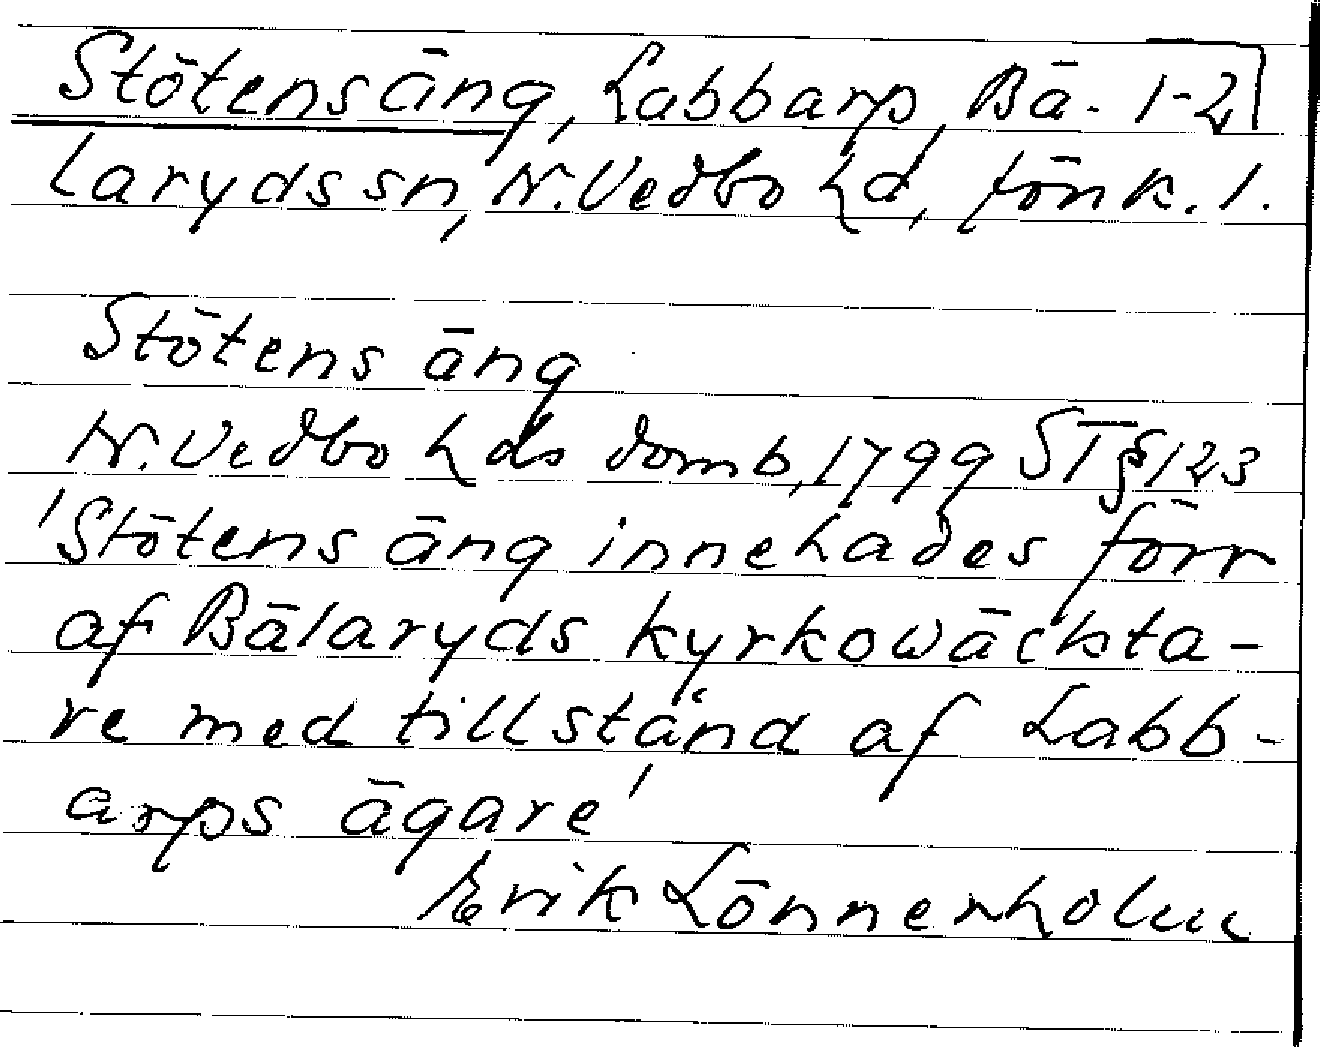 Stötensäng, Labbarp, Bä- 1-2
laryds sn, N. Vedbo hd, Jönk. l.
Stötens äng
N. Vedbo hds domb, 1799 ST § 123
'Stötens äng innehades förr
af Bälaryds kyrkowäckta-
re med tillstånd af Labb-
arps ägare'
Erik Lönnerholm